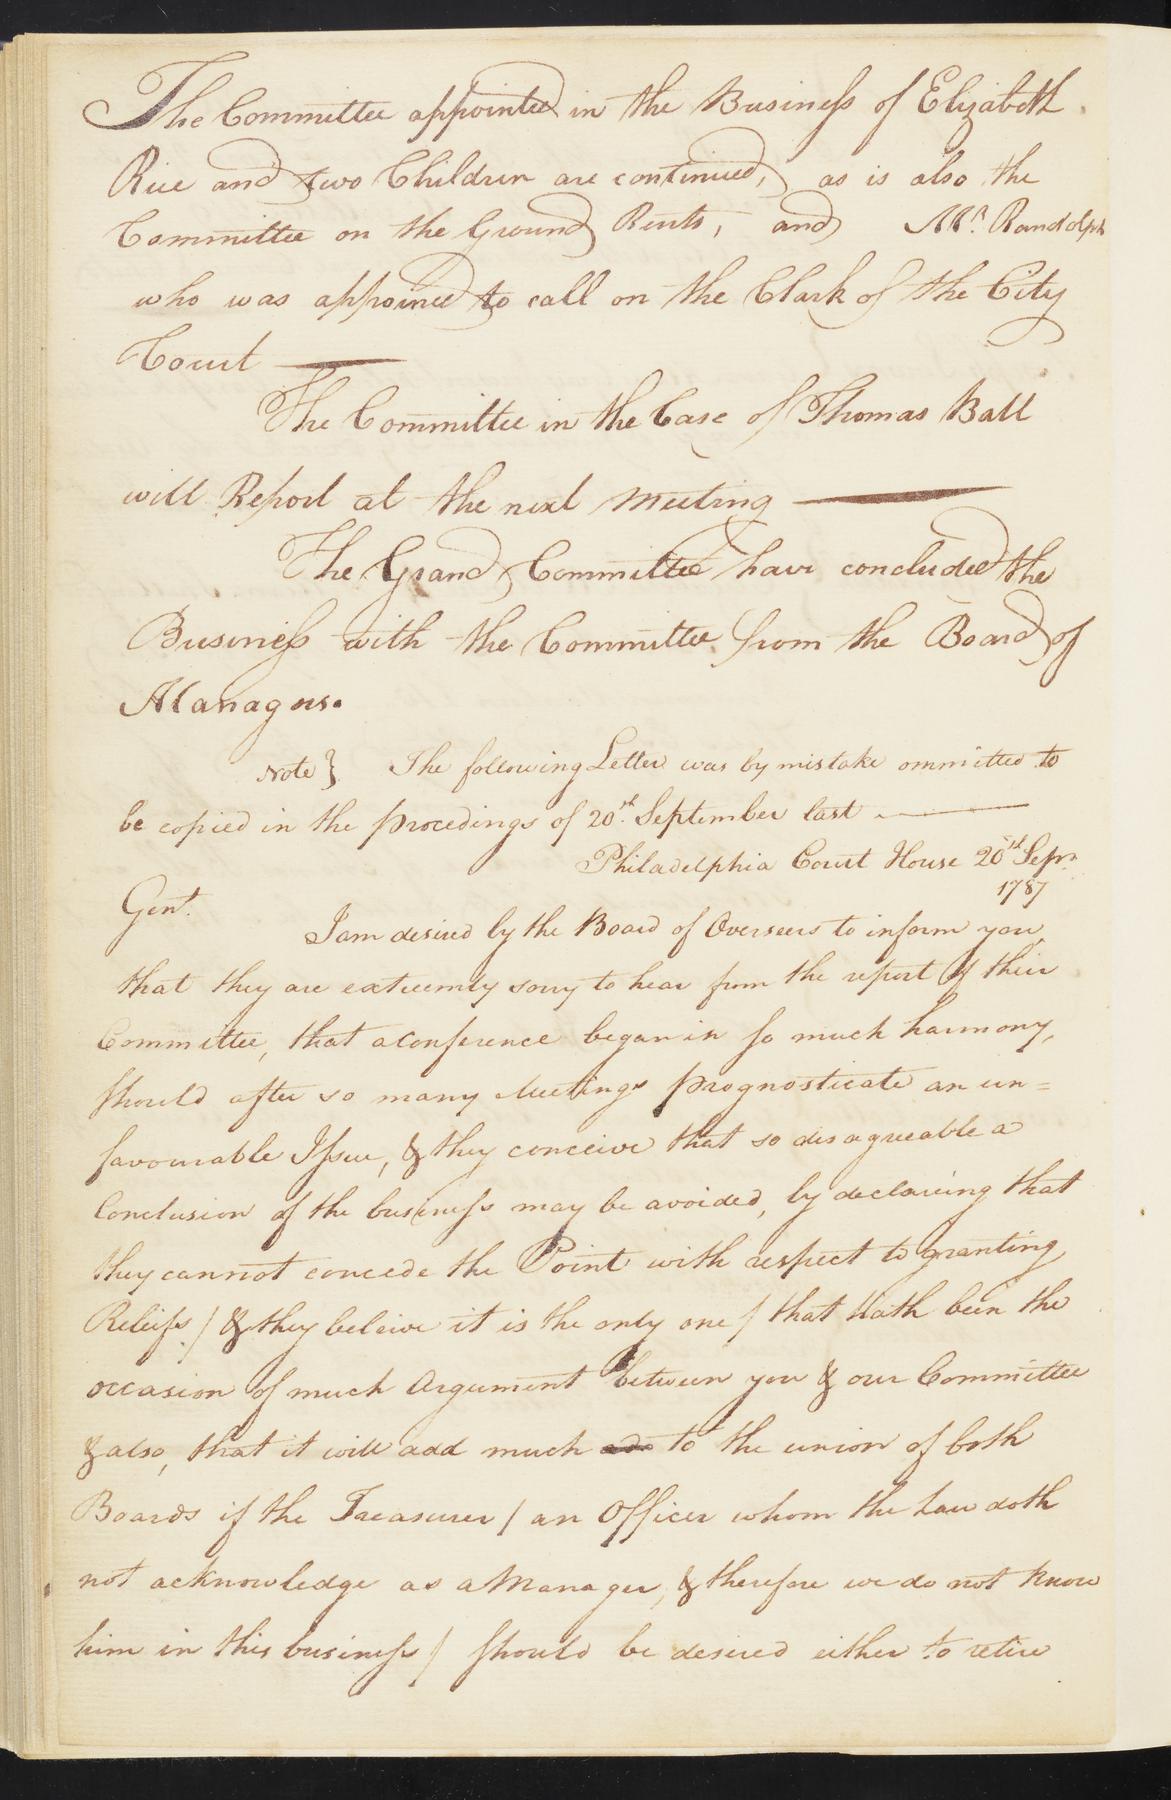 The Committee appointed in the Business of Elizabeth
Rice and two Children are continued, as is also the
Committee on the Ground Rents, and Mr. Randolph
who was appoined to call on the Clark of the City
Court
The Committee in the Case of Thomas Ball
will Report at the next Meeting
The Grand Committee have concluded the
Business with the Committee from the Board of
Managers.
Note } The following Letter was by mistake ommitted to
be copied in the procedings of 20st September last
Philadelphia Court House 20st Sepr.
1787
Gent.
I am desired by the Board of Overseers to inform you,
that they are extreemly sorry to hear from the report of their
Committee, that a Conference began in so much harmony,
should after so many Meetings prognosticate an un=
favourable Issue, & they conceive that so disagreeable a
Conclusion of the business may be avoided, by declareing that
they cannot concede the Point with respect to granting
Releifs / & they beleive it is the only one / that hath been the
occasion of much Argument between you & our Committee
& also, that it will add much to the union of both
Boards if the Treasurer / an Officer whom the Law doth
not acknowledge as a Manager, & therefore we do not know
him in this business / should be desired either to retire